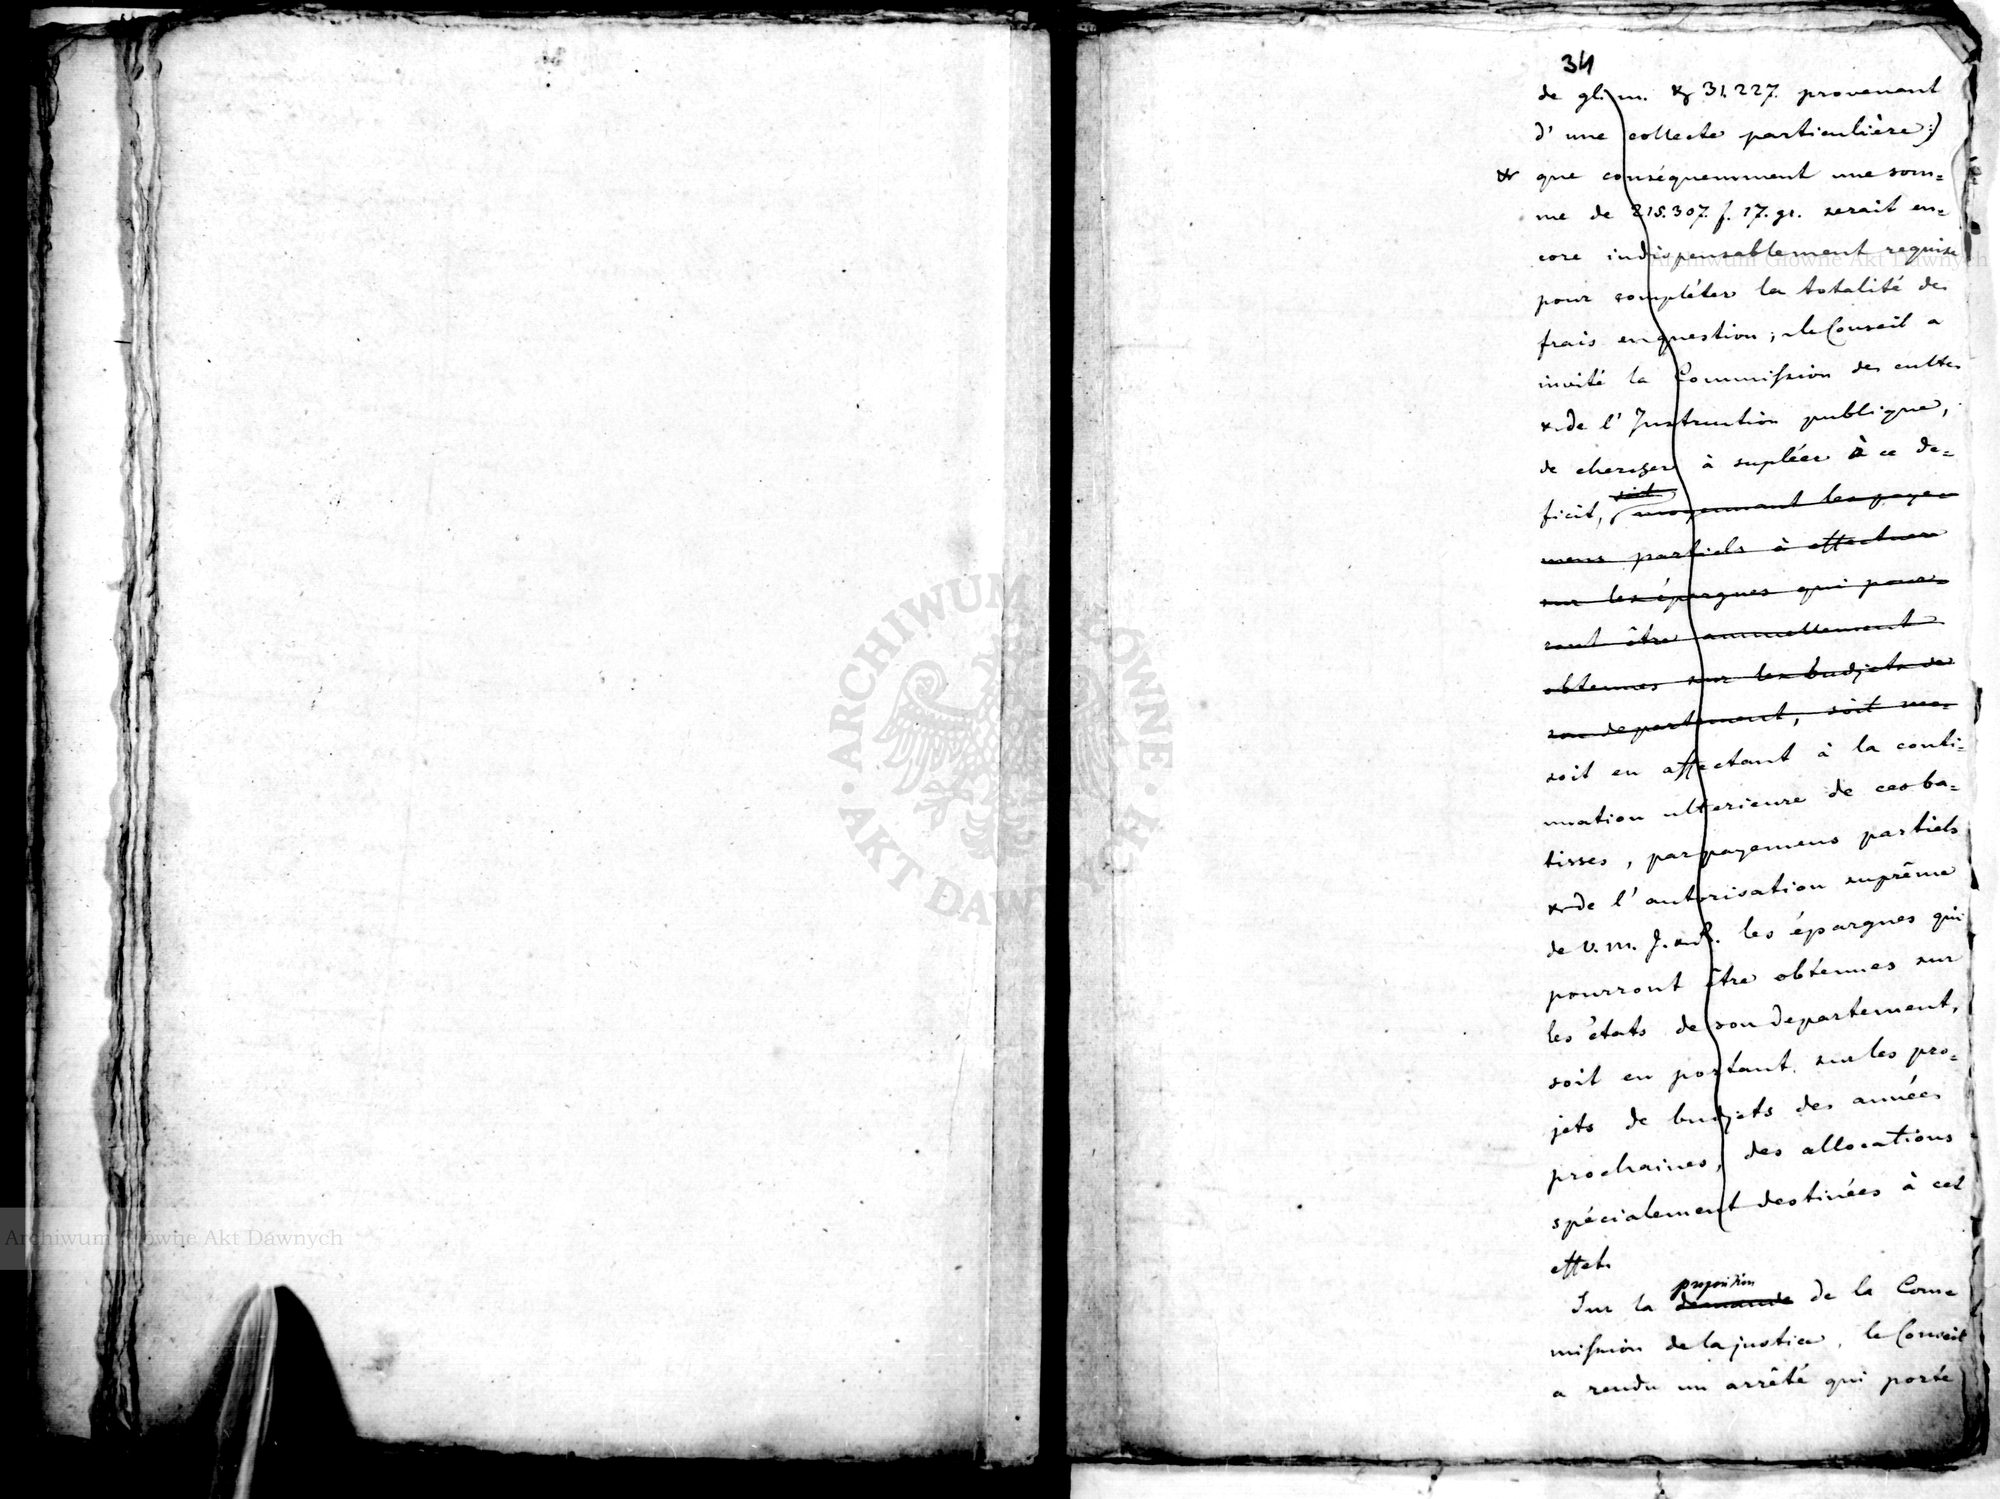 34
de gl. m. & 31.227. provenant
d'une collecte particulière:)
& que conséquemment une som=
me de 215.307. f. 17. gr. serait en=
core indispensablement requise
pour compléter la totalité des
frais en question; le Conseil a
invité la Commission des cultes
& de l'Instruction publique,
de cherger à supléer à ce de=
ficit, soit moyennant les paye=
mens partiels à effectuer
sur les épargnes qui pour=
ront être annuellement
obtenues sur les budjets de
son departement, soit
soit en affectant à la conti=
nuation ulterieure de ces ba=
tisses, par payemens partiels
& de l'autorisation suprême
de V. M. J. & R. les épargnes qui
pourront être obtenues sur
les états de son departement,
soit en portant sur les pro=
jets de budjets des années
prochaines, des allocations
spécialement destinées à cet
effet.
proposition
Sur la demande de la Com=
mission de la justice, le Conseil
a rendu un arrêté qui porte
Archiwum Główne Akt Dawnych
Archiwum Główne Akt Dawnych
ARCHIWUM GŁÓWNE AKT DAWNYCH